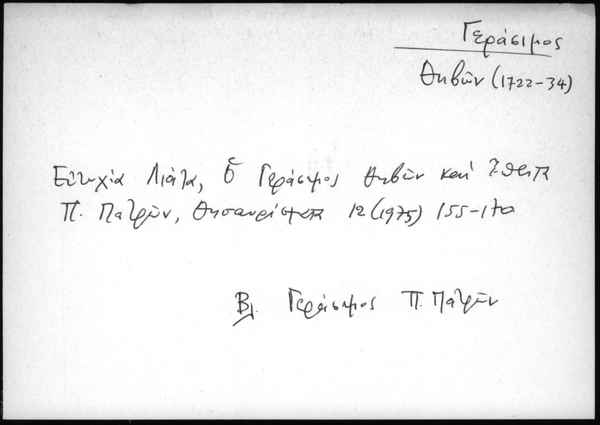 Γεράσιμος
Θηβῶν (1722-34)
Εὐτυχία Λιάτα, Ὁ Γεράσιμος Θηβῶν καὶ
Π. Πατρῶν, Θησαυρίσματα 12 (1975) 155-170
Βλ. Γεράσιμος Π. Πατρῶν